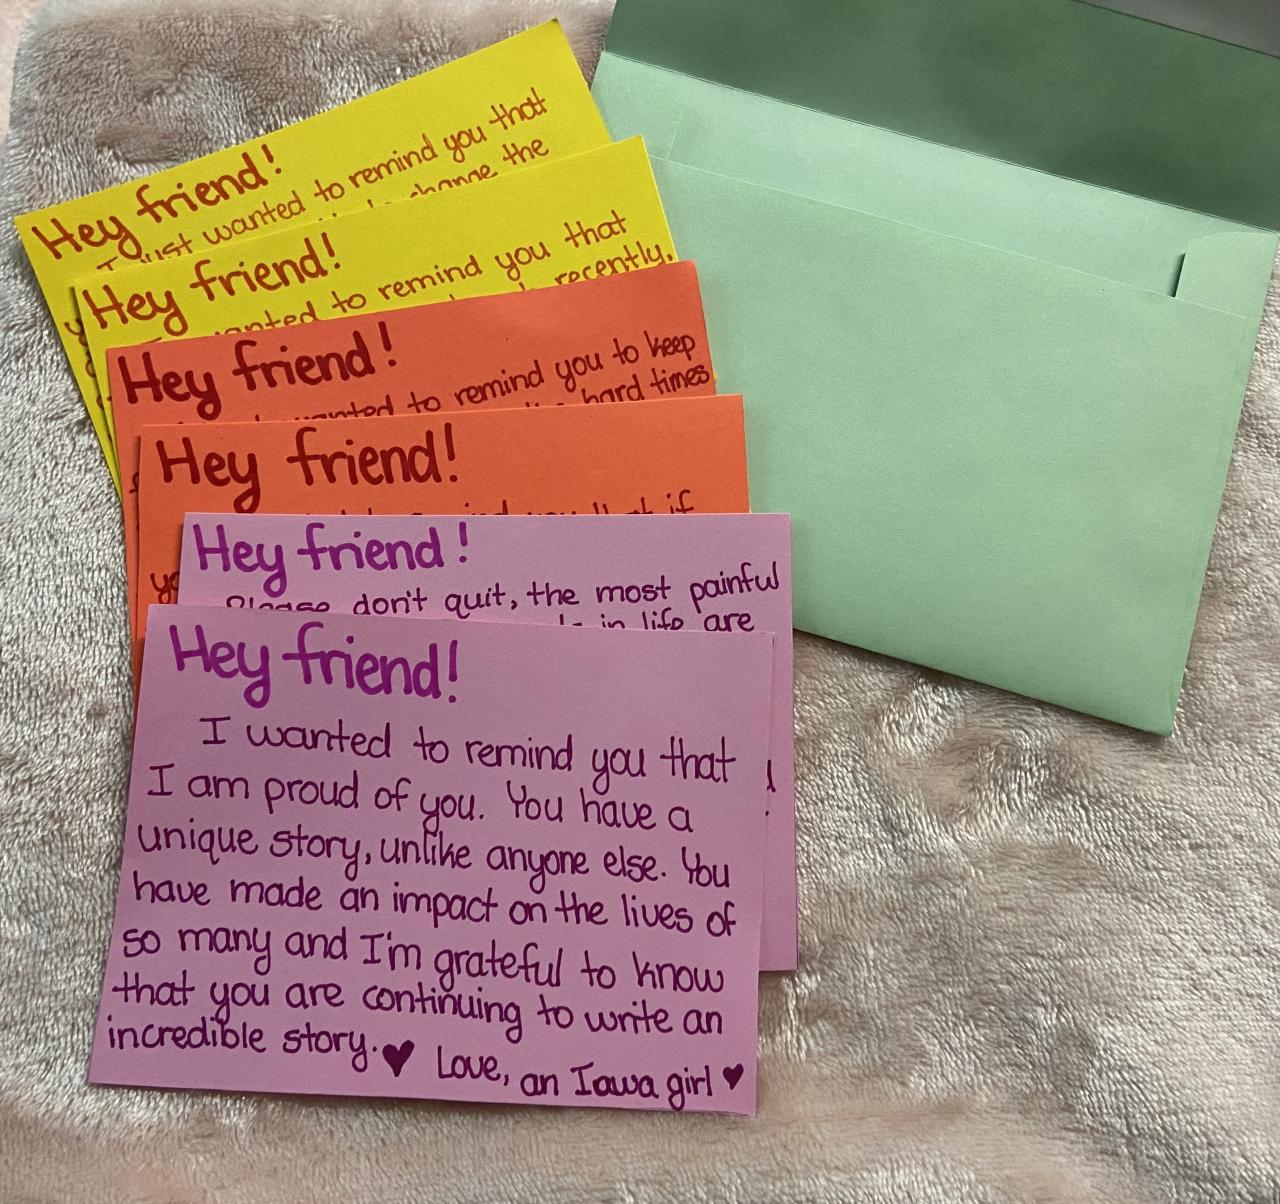 Hey friend!
I just wanted to remind you that
change the
Hey friend!
wanted to remind you that
recently,
Hey friend!
wanted to remind you to keep
hard times
Hey friend!
remind you that if
Hey friend!
Please don't quit, the most painful
in life are
Hey friend!
I wanted to remind you that
I am proud of you. You have a
unique story, unlike anyone else. You
have made an impact on the lives of
so many and I'm grateful to know
that you are continuing to write an
incredible story.♥ Love, an Iowa girl ♥